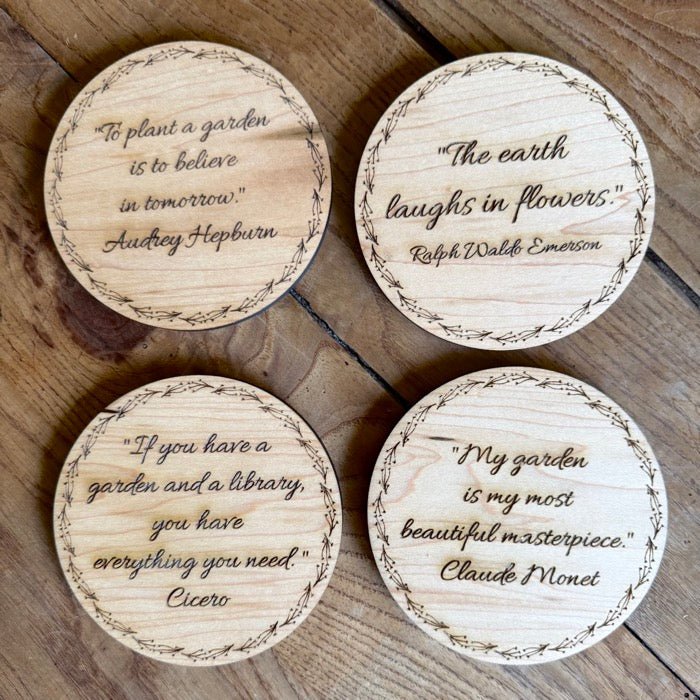 "To plant a garden
is to believe
in tomorrow."
Audrey Hepburn
"The earth
laughs in flowers."
Ralph Waldo Emerson
"If you have a
garden and a library,
you have
everything you need."
Cicero
"My garden
is my most
beautiful masterpiece."
Claude Monet